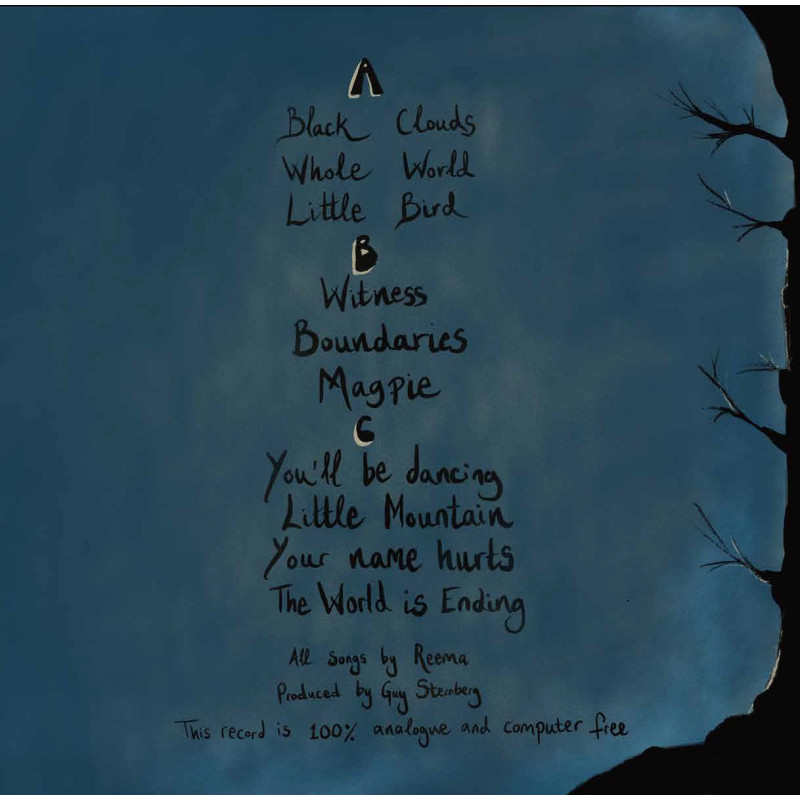 A
Black Clouds
Whole World
Little Bird
B
Witness
Boundaries
Magpie
C
You'll be dancing
Little Mountain
Your name hurts
The World is Ending
All songs by Reema
Produced by Guy Sternberg
This record is 100% analogue and computer free